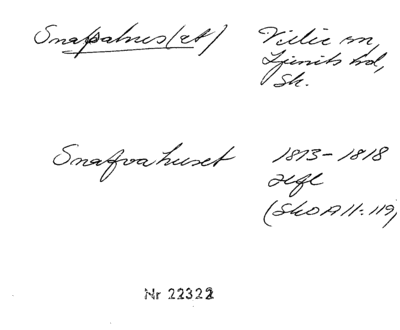 Snapahus(et)
Villie sn,
Ljunits hd,
Sk.
Snafvahuset
1813-1818
hfl
(SkOA II: 119)
Nr 22322